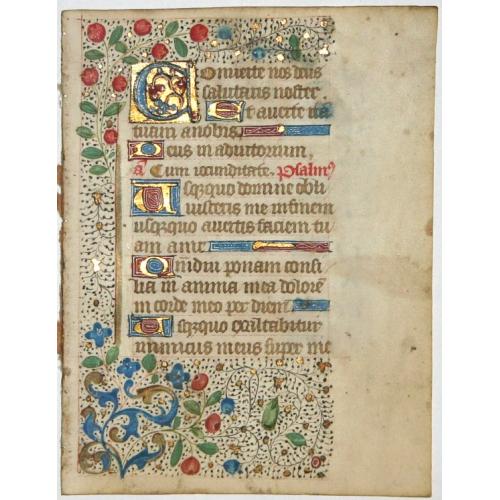 Conuerte nos deus
salutaris noster.
Et auerte ira
tuam anobis.
Deus in adiutorium,
a Cum iocunditate. Psalm9
Usqzquo domine obli
uisceris me in finem
usqzquo auertis faciem tu
am ame
Quãdiu ponam consi
lia in anima mea dolorẽ
in corde meo per diem.
Usqzquo exaltabitur
inimicus meus super me